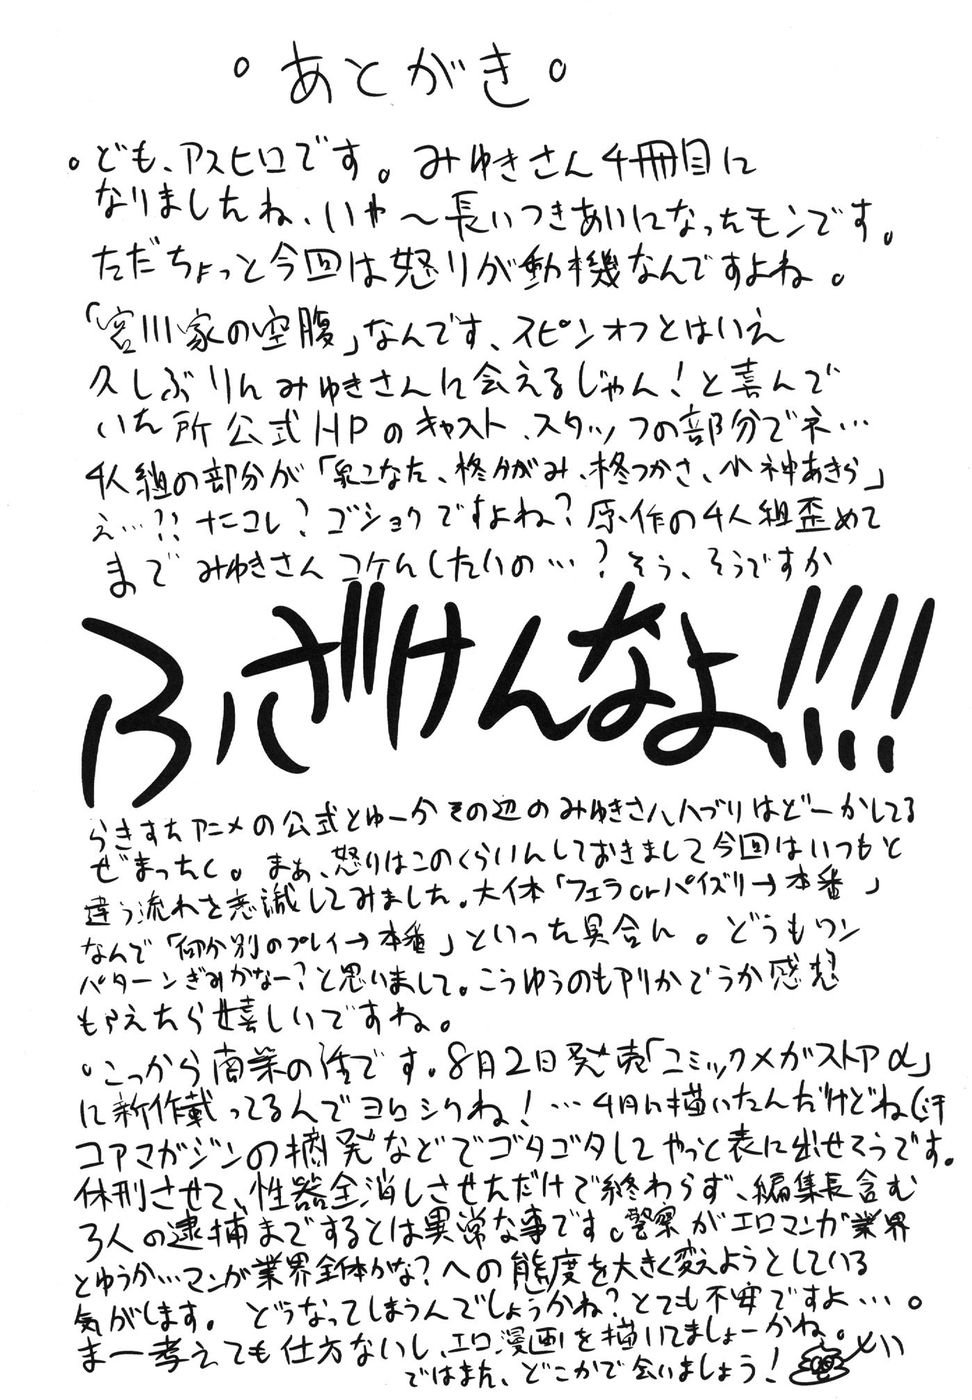 。あとがき。
。ども、アスヒロです。みゆきさん4冊目に
なりましたね、いや〜長いつきあいになったモンです。
ただちょっと今回は怒りが動機なんですよね。
「宮川家の空腹」なんです、スピンオフとはいえ
久しぶりんみゆきさんに会えるじゃん！と喜んで
いた所公式HPのキャスト、スタッフの部分でネ…
4人組の部分が「泉こなた、柊かがみ、柊つかさ、小神あきら」
え…?? ナニコレ？ゴショクですよね？原作の4人組歪めて
まで みゆきさんコケんしたいの…？そう、そうですか
ふざけんなよ!!!!
らきすたアニメの公式とゆーかその辺のみゆきさんハブりはどーかしてる
ぜまったく。まぁ、怒りはこのくらいんしておきまして今回はいつもと
違う流れを意識してみました。大体「フェラorパイズリ→本番」
なんで「何か別のプレイ→本番」といった具合ん。どうもワン
パターンぎみかなー？と思いまして。こうゆうのもアリかどうか感想
もらえたらせ嬉しいですね。
・こっから商業の話です。8月2日発売「コミックメガストアα」
に新作載ってるんでヨロシクね！…4月に描いたんだけどね(汗
コアマガジンの摘発などでゴタゴタしてやっと表に出せそうです。
休刊させて、性器全消しさせただけで終わらず、編集長含む
3人の逮捕までするとは異常な事です。警察がエロマンガ業界
とゆうか…マンガ業界全体かな？への態度を大きく変えようとしている
気がします。どうなってしまうんでしょうかね？とても不安ですよ…。
まー考えても仕方ないし、エロ漫画を描いてましょーかね。
ではまた、どこかで会いましょう！